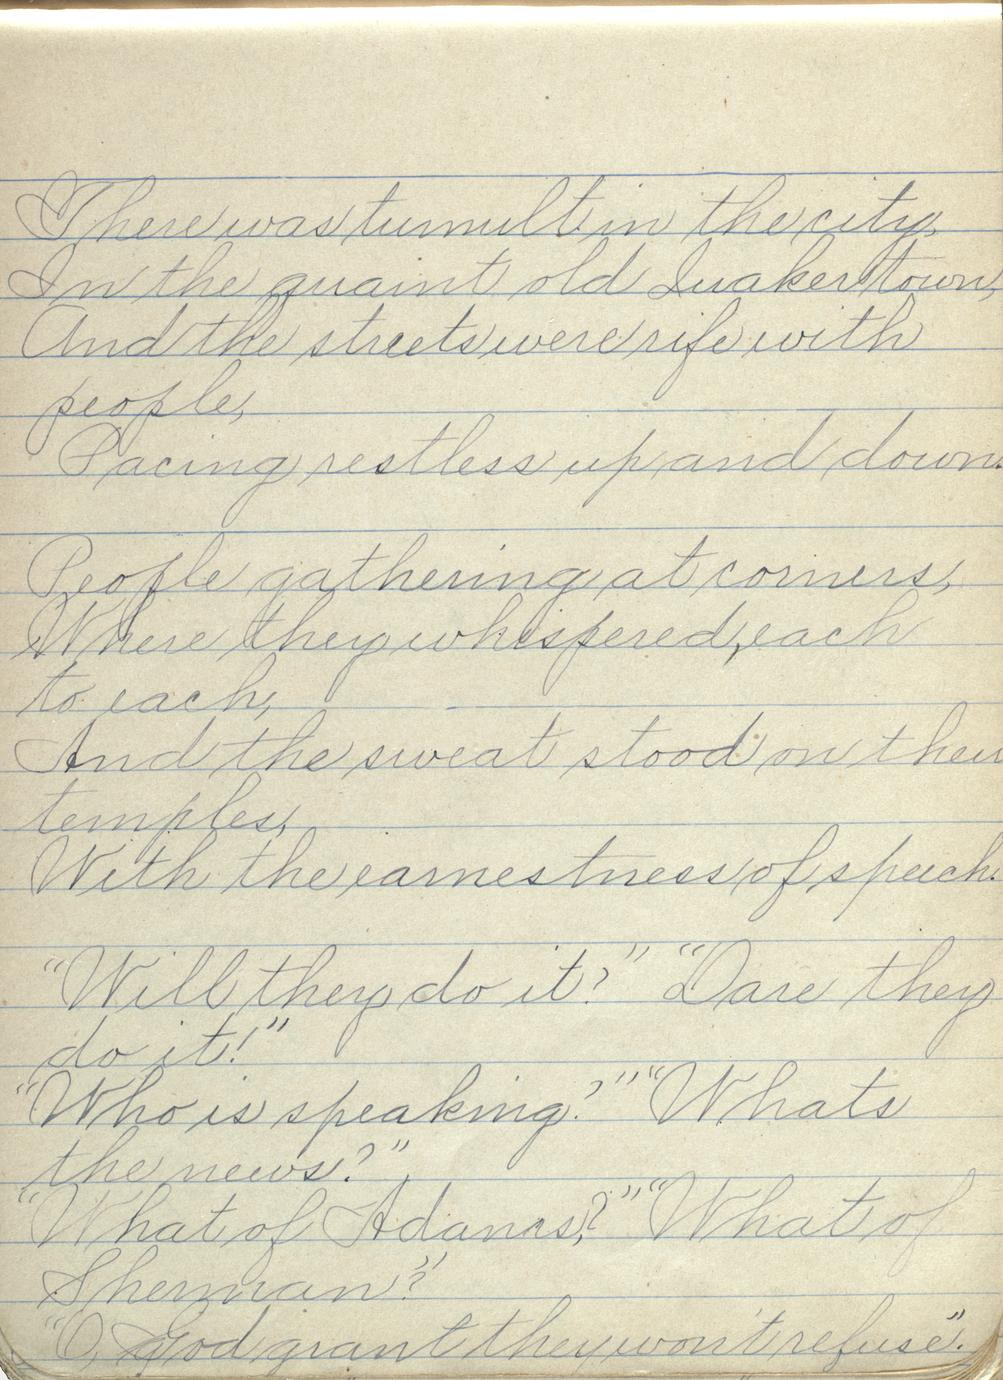 There was tumult in the city,
In the quaint old Quaker town,
And the streets were rife with
people,
Pacing restless up and down.
People gathering at corners,
Where they whispered, each
to each,
And the sweat stood on their
temples,
With the earnestness of speech.
"Will they do it?" "Dare they
do it!"
"Who is speaking?" "Whats
the news?"
"What of Adams?" "What of
Sherman?"
"O, God grant they won't refuse".